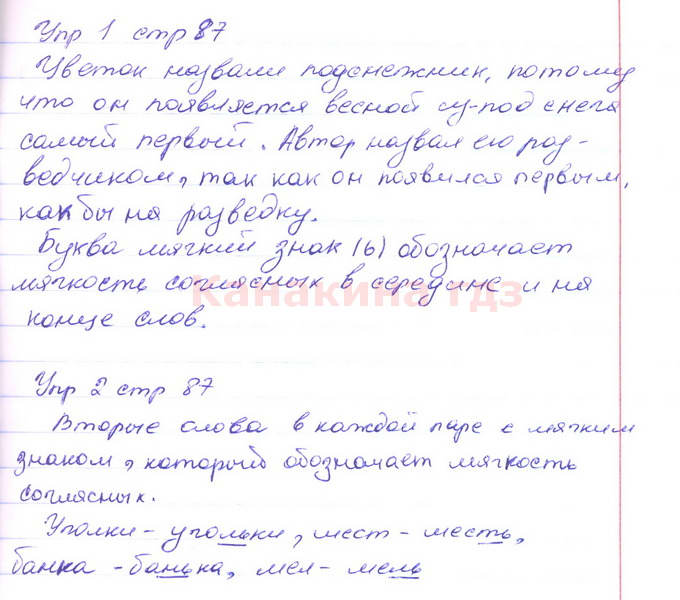 Упр 1 стр 87
Цветок назвали подснежник, потому
что он появляется весной из-под снега
самый первый. Автор назвал его раз-
ведчиком, так как он появился первым,
как бы на разведку.
Буква мягкий знак (ь) обозначает
мягкость согласных в середине и на
Канакина гдз
конце слов.
Упр 2 стр 87
Вторые слова в каждой паре с мягким
знаком, который обозначает мягкость
согласных.
Уголки - угольки, мест - месть,
банка - банька, мел - мель